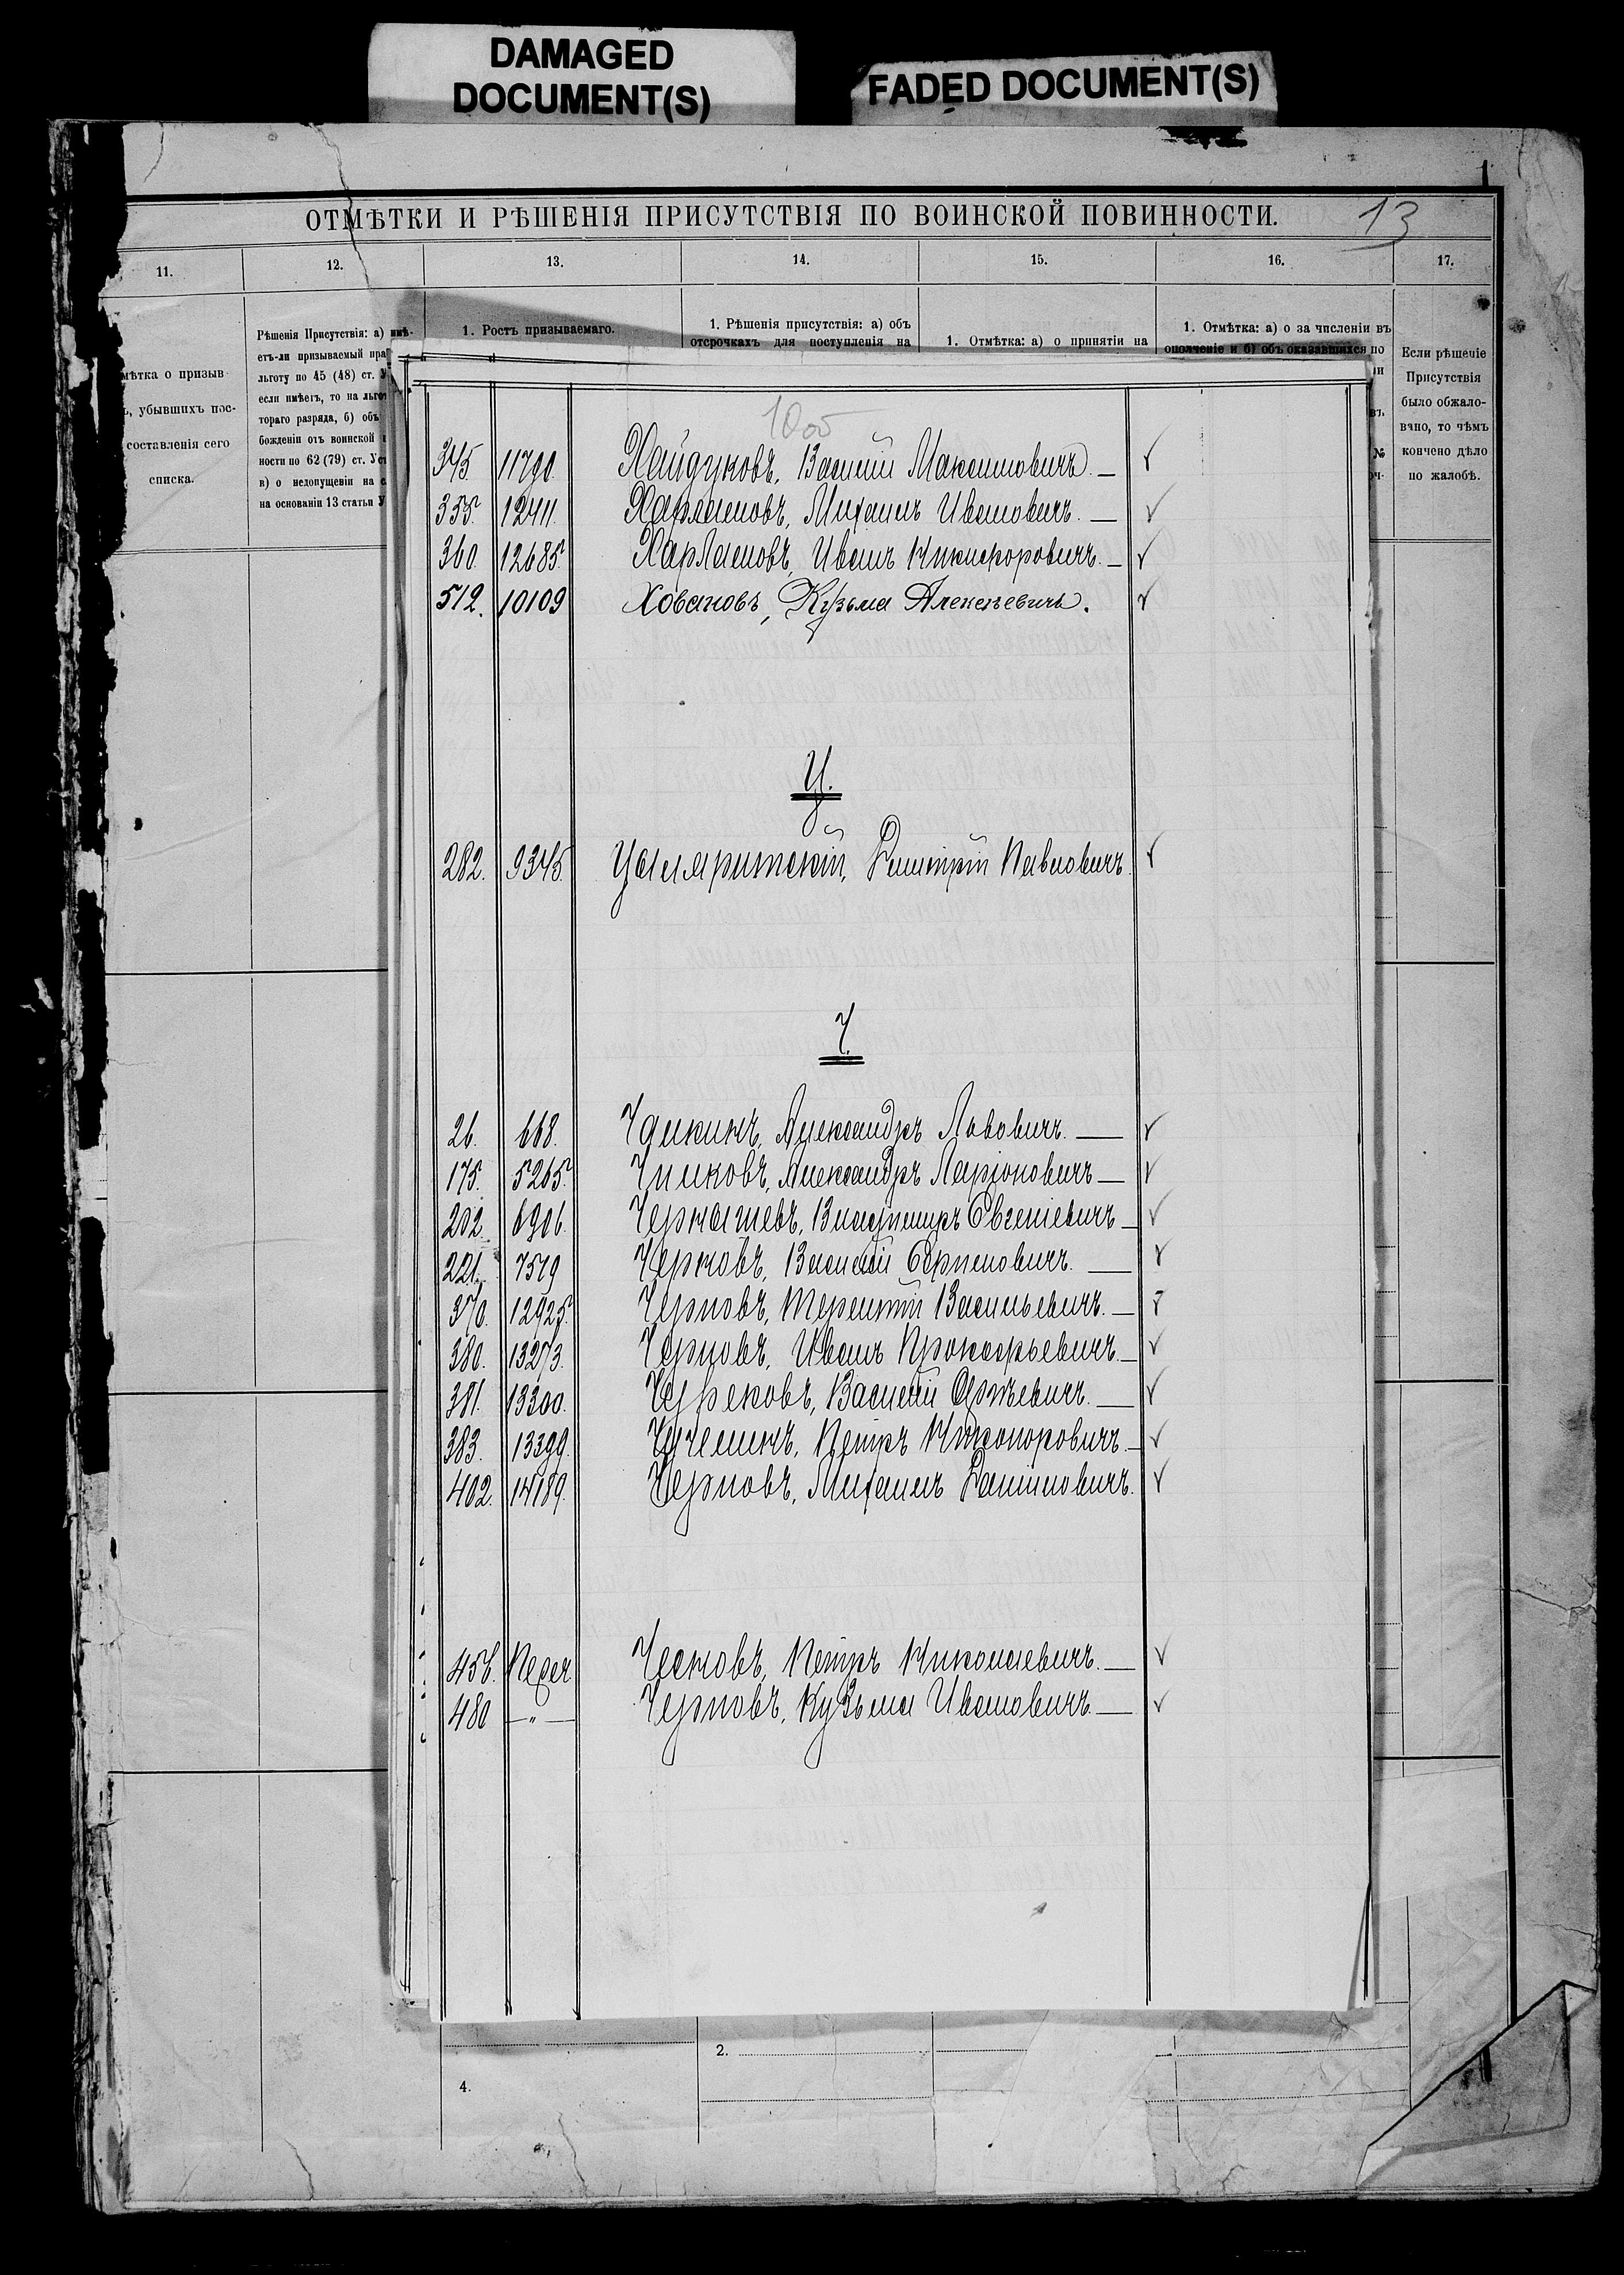 DAMAGED
DOCUMENT(S)
FADED DOCUMENT(S)
ОТМѢТКИ И РѢШЕНІЯ ПРИСУТСТВІЯ ПО ВОИНСКОЙ ПОВИННОСТИ.
13
11. 12. 13. 14. 15. 16. 17.
мѣтка о призыв
, убывшихъ пос-
составленія сего
списка.
Рѣшенія Присутствія: а) имѣ-
етъ-ли призываемый пра
льготу по 45 (48) ст. У
если имѣетъ, то на льго
тораго разряда, б) объ
божденіи отъ воинской
ности по 62 (79) ст. Уст
в) о недопущеніи на
на основаніи 13 статьи У
1. Ростъ призываемаго.
1. Рѣшенія присутствія: а) объ
отсрочкахъ для поступленія на
1. Отмѣтка: а) о принятіи на
1. Отмѣтка: а) о зачисленіи въ
ополченіе и б) объ оказавшихся по
Если рѣшеніе
Присутствія
было обжало-
вано, то чѣмъ
кончено дѣло
по жалобѣ.
345. 11790. Хайдуковъ, Василій Максимовичъ. — ✓
355. 12411. Харламовъ, Михаилъ Ивановичъ. — ✓
360. 12685. Харламовъ, Иванъ Никифоровичъ. — ✓
512. 10109 Ховановъ, Кузьма Алексѣевичъ. ✓
Ц.
282. 9345. Дмитрій Павловичъ. ✓
Ч.
26. 668. Чаикинъ, Александръ Львовичъ. — ✓
175. 5265. Александръ Ларіоновичъ — ✓
202. 6906. Чернышевъ, Владиміръ Евгеніевичъ — ✓
221. 7519 Черновъ, Василій Ефимовичъ. — ✓
370. 12925. Черновъ, Терентій Васильевичъ. — ✓
380. 13273. Черновъ, Иванъ Прокофьевичъ. — ✓
381. 13300. Василій — ✓
383. 13399. Петръ Никаноровичъ. — ✓
402. 14189. Черновъ, Михаилъ Даниловичъ. ✓
456. Чесновъ, Петръ Николаевичъ. — ✓
480 — „ — Черновъ, Кузьма Ивановичъ. — ✓
2.
4.